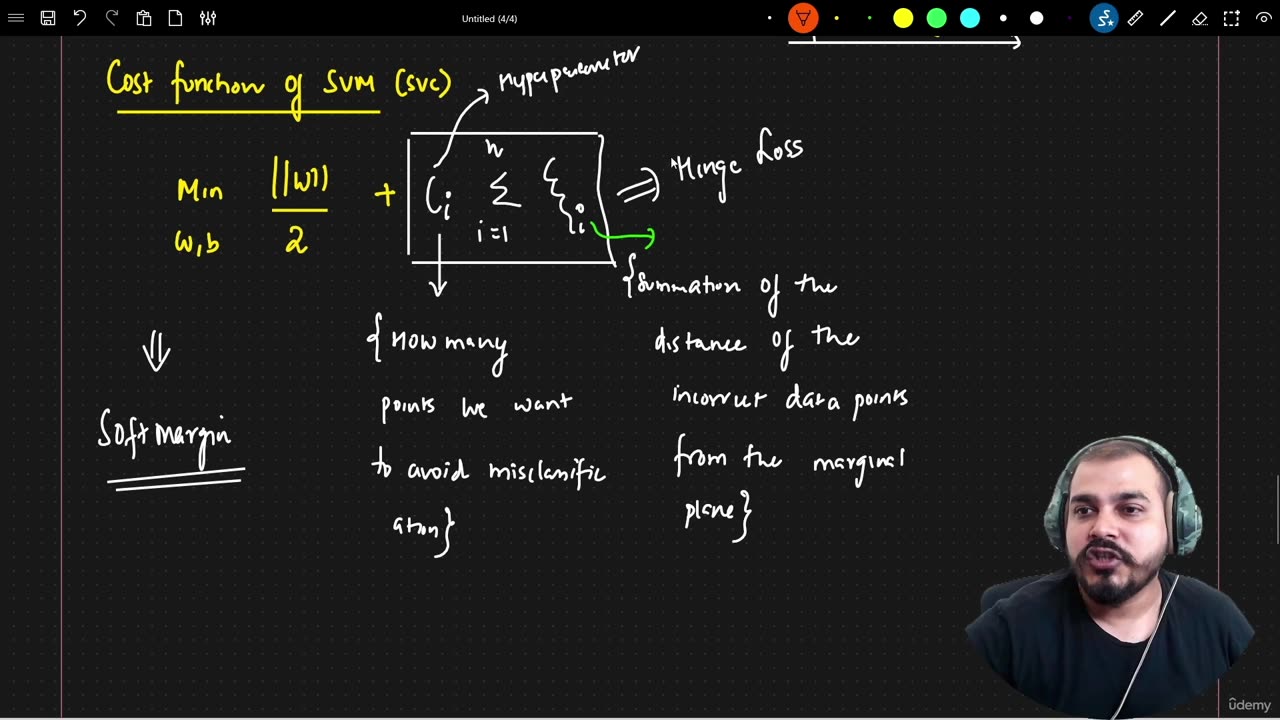 Untitled (4/4)
Cost function of SVM (SVC)
Hyperparameter
Min ||w|| + Ci n Σ ξi ⇒ Hinge Loss
w,b 2 i=1
{Summation of the
distance of the
incorrect data points
from the marginal
plane}
{How many
points we want
to avoid misclassific
ation}
⇓
Soft margin
ûdemy